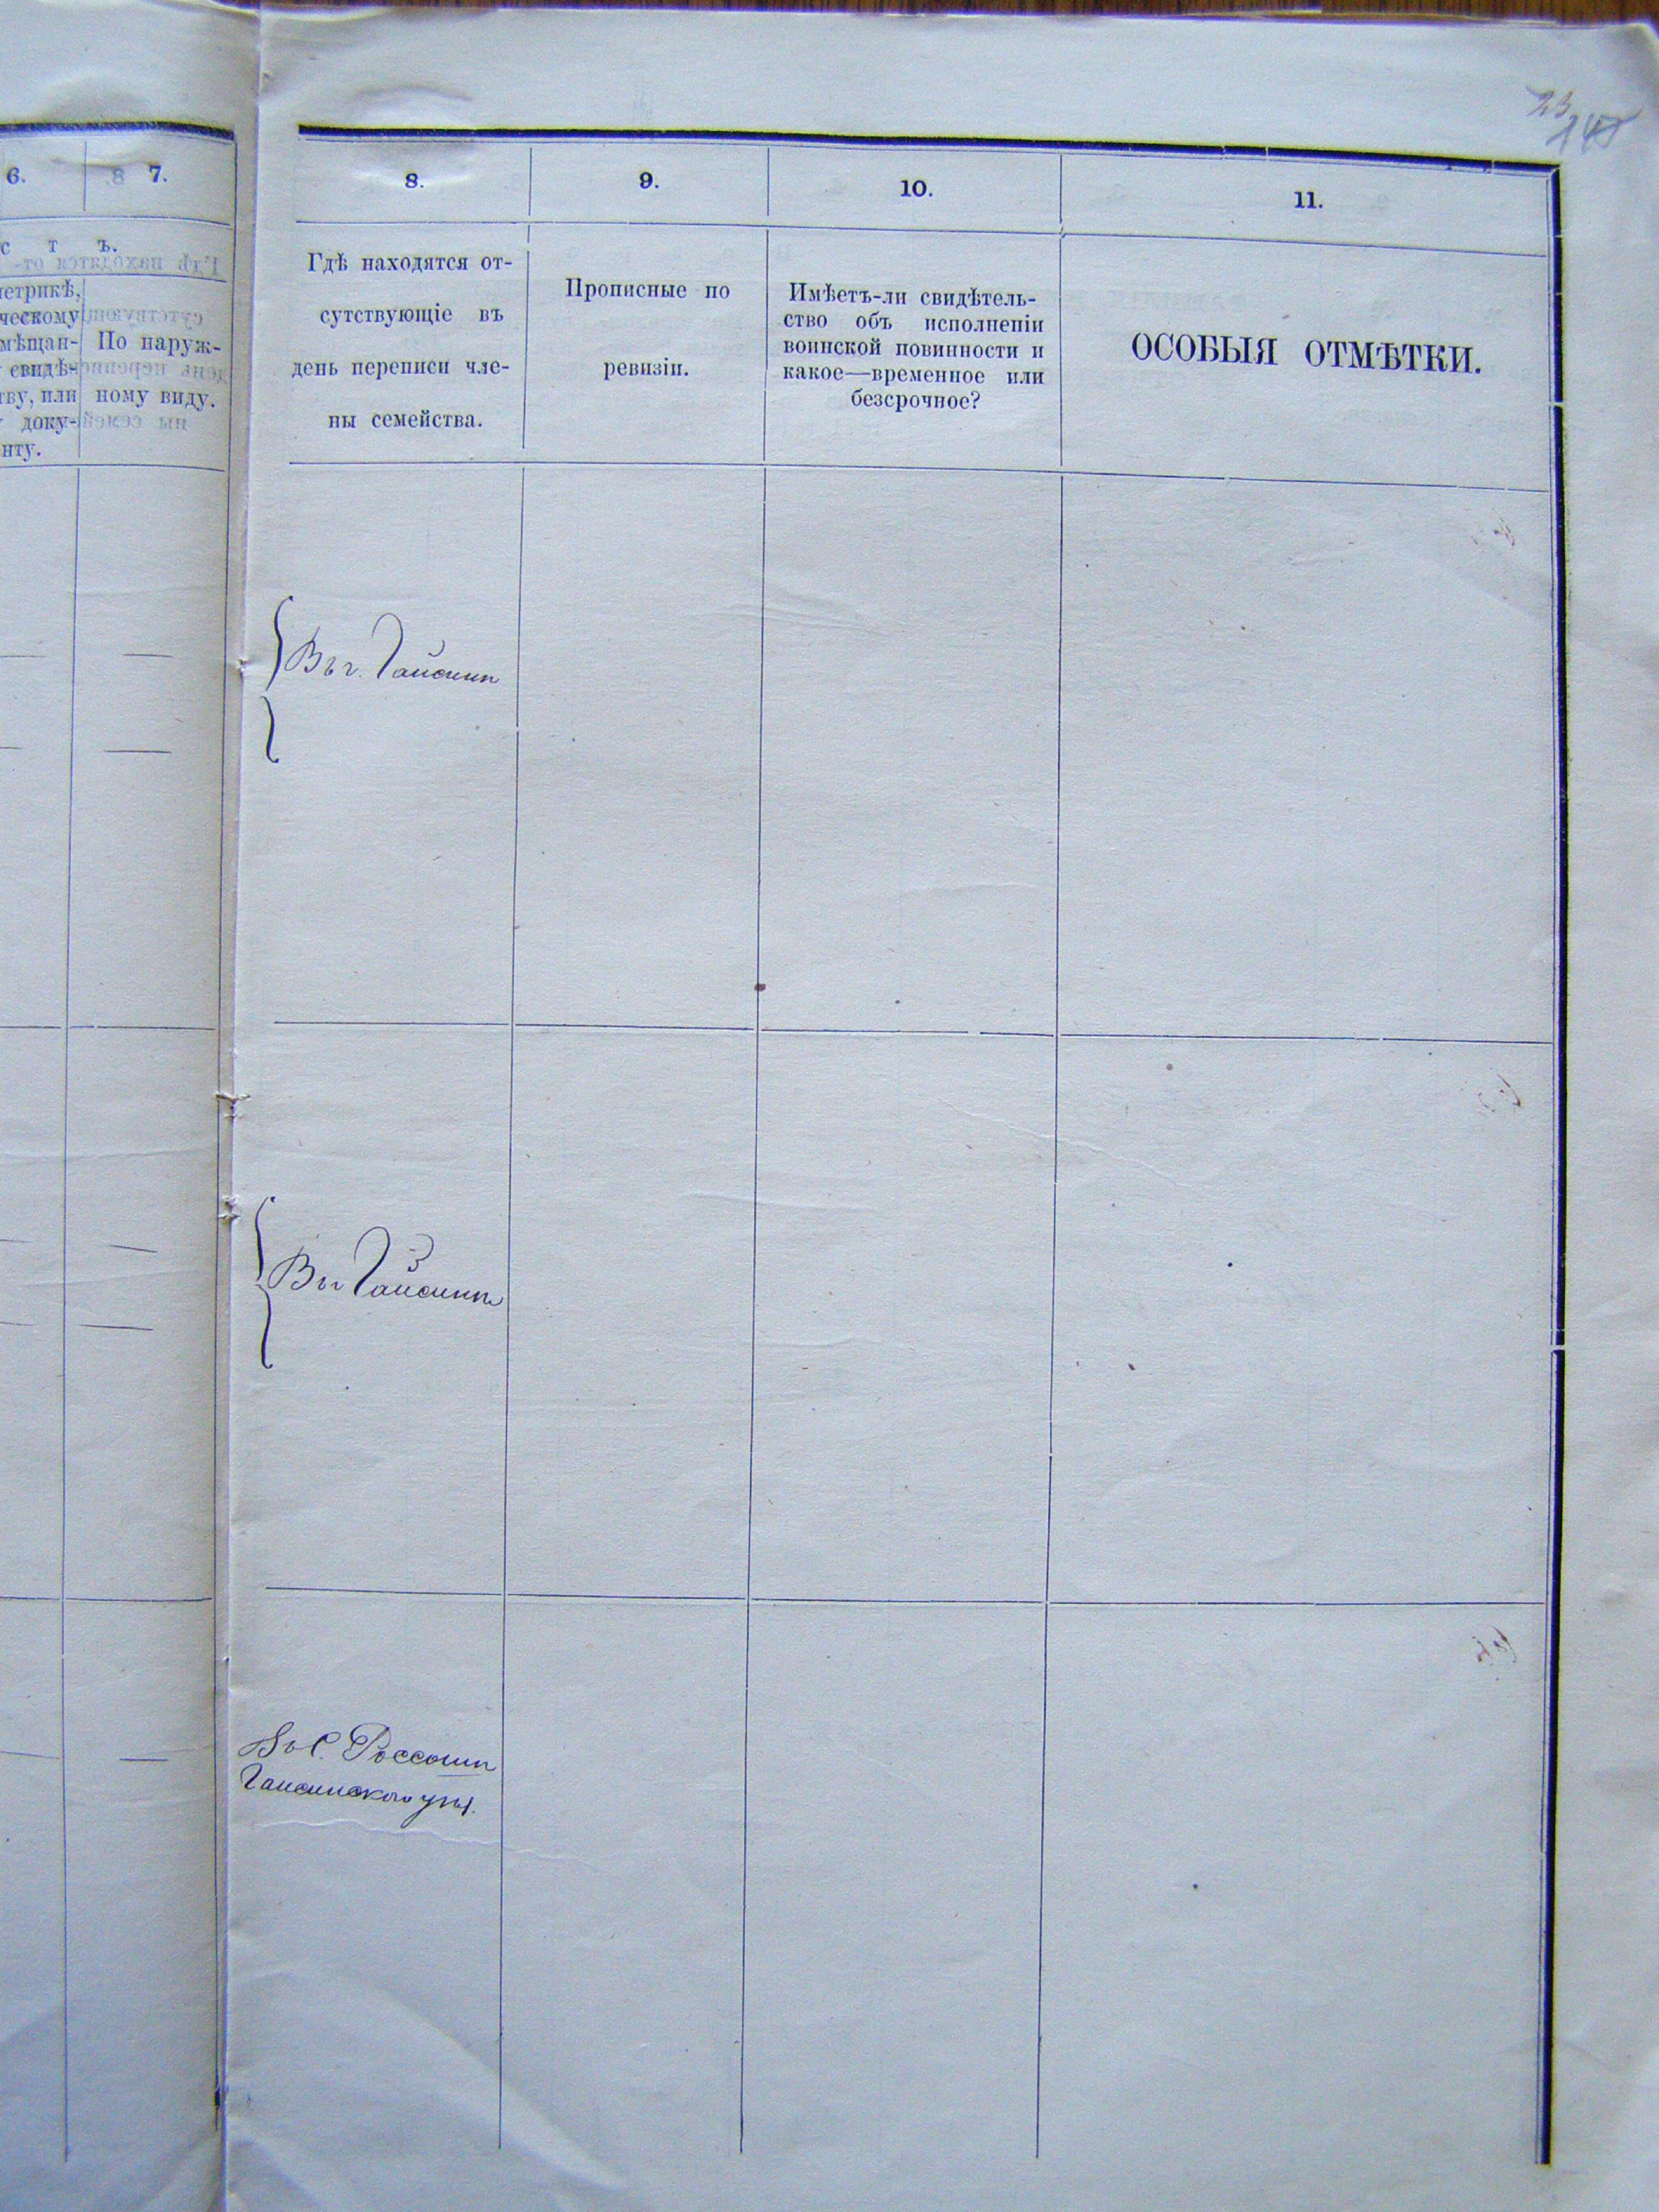 23
6. 7.
с т ъ.
метрикѣ,
ческому
мѣщан-
свидѣ-
тву, или
доку-
нту.
По наруж-
ному виду.
8. 9. 10. 11.
Гдѣ находятся от-
сутствующіе въ
день переписи чле-
ны семейства.
Прописные по
ревизіи.
Имѣетъ-ли свидѣтель-
ство объ исполненіи
воинской повинности и
какое—временное или
безсрочное?
ОСОБЫЯ ОТМѢТКИ.
Въ г. Гайсинѣ
Въ г Гайсинѣ
Въ С. Россоши
Гайсинского уѣзд.